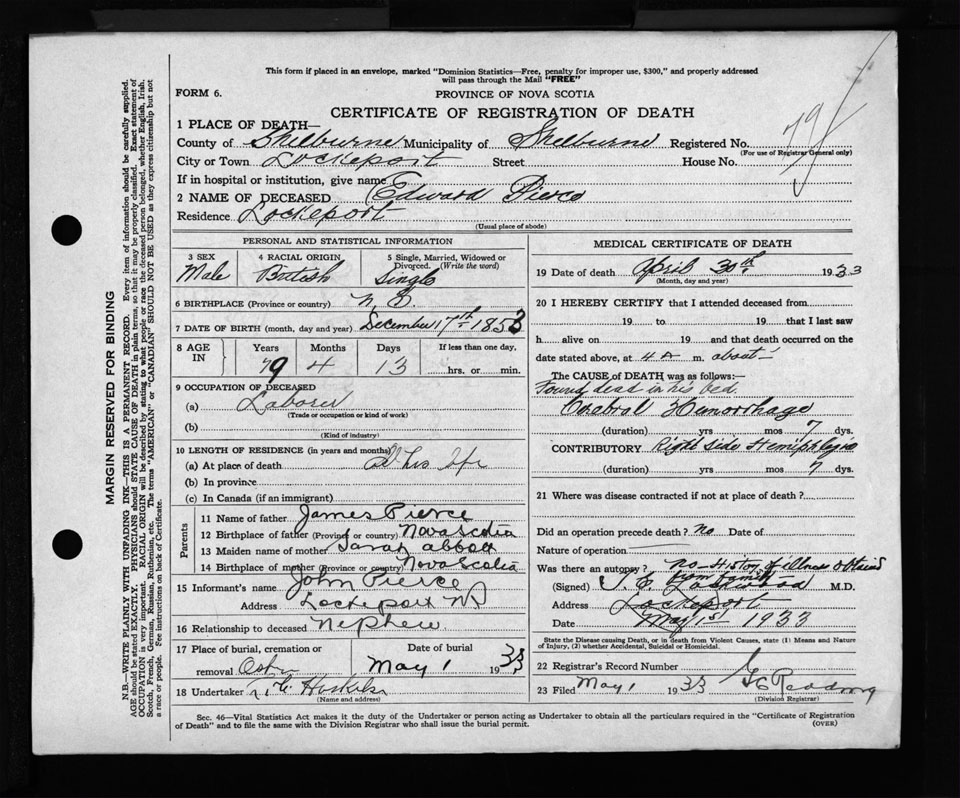 This form if placed in an envelope, marked "Dominion Statistics—Free, penalty for improper use, $300," and properly addressed
will pass through the Mail "FREE"
FORM 6.
PROVINCE OF NOVA SCOTIA
CERTIFICATE OF REGISTRATION OF DEATH
1 PLACE OF DEATH—
County of Shelburne Municipality of Shelburne Registered No.
(For use of Registrar General only)
79
City or Town Lockeport Street House No.
If in hospital or institution, give name
2 NAME OF DECEASED Edward Pierce
Residence Lockeport
(Usual place of abode)
PERSONAL AND STATISTICAL INFORMATION
3 SEX
Male
4 RACIAL ORIGIN
British
5 Single, Married, Widowed or
Divorced. (Write the word)
Single
6 BIRTHPLACE (Province or country) N.S.
7 DATE OF BIRTH (month, day and year) December 17th 1853
8 AGE IN
Years Months Days If less than one day,
79 4 13 hrs. or min.
9 OCCUPATION OF DECEASED
(a) Laborer
(Trade or occupation or kind of work)
(b)
(Kind of industry)
10 LENGTH OF RESIDENCE (in years and months)
(a) At place of death All his life
(b) In province
(c) In Canada (if an immigrant)
Parents
11 Name of father James Pierce
12 Birthplace of father (Province or country) Nova Scotia
13 Maiden name of mother Sarah Abbott
14 Birthplace of mother (Province or country) Nova Scotia
15 Informant's name John Pierce
Address Lockeport NS
16 Relationship to deceased Nephew
17 Place of burial, cremation or Date of burial
removal May 1 1933
18 Undertaker
(Name and address)
MEDICAL CERTIFICATE OF DEATH
19 Date of death April 30th 1933
(Month, day and year)
20 I HEREBY CERTIFY that I attended deceased from
19 to 19 that I last saw
h alive on 19 and that death occurred on the
date stated above, at 4 a m. about
The CAUSE OF DEATH was as follows:
Found dead in his bed.
Cerebral Hemorrhage
(duration) yrs mos 7 dys.
CONTRIBUTORY Right side Hemiplegia
(duration) yrs mos 7 dys.
21 Where was disease contracted if not at place of death?
Did an operation precede death? no Date of
Nature of operation
Was there an autopsy? no - History of illness obtained
from family
(Signed) M.D.
Address Lockeport
Date May 1st 1933
State the Disease causing Death, or in death from Violent Causes, state (1) Means and Nature
of Injury, (11) whether Accidental, Suicidal or Homicidal.
22 Registrar's Record Number
23 Filed May 1 1933
(Division Registrar)
Sec. 46—Vital Statistics Act makes it the duty of the Undertaker or person acting as Undertaker to obtain all the particulars required in the "Certificate of Registration
of Death" and to file the same with the Division Registrar who shall issue the burial permit.
(OVER)
MARGIN RESERVED FOR BINDING
N.B.—WRITE PLAINLY WITH UNFADING INK—THIS IS A PERMANENT RECORD. Every item of information should be carefully supplied.
AGE should be stated EXACTLY. PHYSICIANS should STATE CAUSE OF DEATH in plain terms, so that it may be properly classified. Exact statement of
OCCUPATION is very important. RACIAL ORIGIN will be described by stating to what people or race the deceased person belonged, whether English, Irish,
Scotch, French, German, Russian, Ruthenian, etc. The terms "AMERICAN" or "CANADIAN" SHOULD NOT BE USED as they express citizenship but not
a race or people. Fee instructions on back of Certificate.